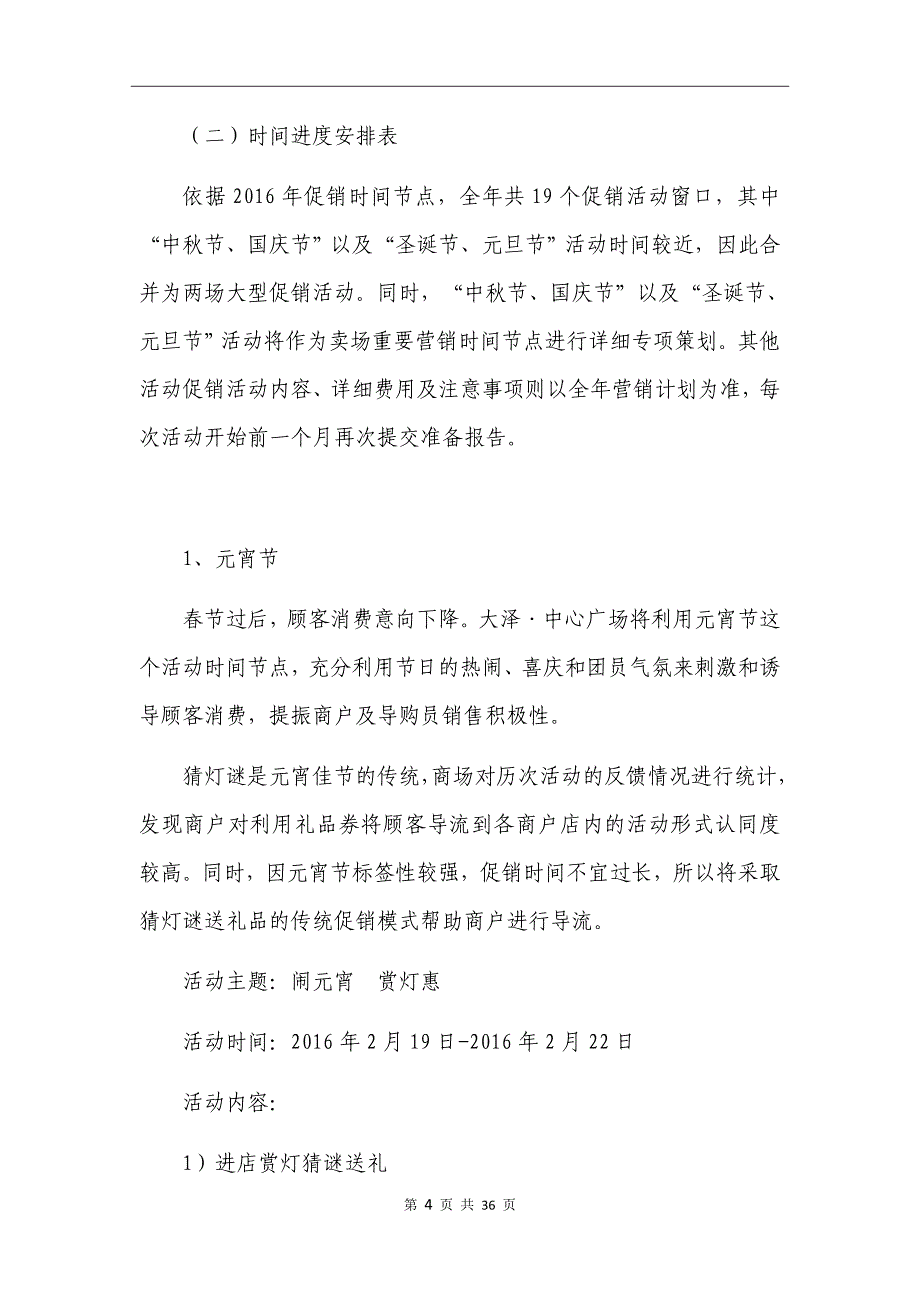 （二）时间进度安排表
依据 2016 年促销时间节点，全年共 19 个促销活动窗口，其中
“中秋节、国庆节”以及“圣诞节、元旦节”活动时间较近，因此合
并为两场大型促销活动。同时，“中秋节、国庆节”以及“圣诞节、
元旦节”活动将作为卖场重要营销时间节点进行详细专项策划。其他
活动促销活动内容、详细费用及注意事项则以全年营销计划为准，每
次活动开始前一个月再次提交准备报告。
1、元宵节
春节过后，顾客消费意向下降。大泽·中心广场将利用元宵节这
个活动时间节点，充分利用节日的热闹、喜庆和团员气氛来刺激和诱
导顾客消费，提振商户及导购员销售积极性。
猜灯谜是元宵佳节的传统，商场对历次活动的反馈情况进行统计，
发现商户对利用礼品券将顾客导流到各商户店内的活动形式认同度
较高。同时，因元宵节标签性较强，促销时间不宜过长，所以将采取
猜灯谜送礼品的传统促销模式帮助商户进行导流。
活动主题：闹元宵　赏灯惠
活动时间：2016 年 2 月 19 日-2016 年 2 月 22 日
活动内容：
1）进店赏灯猜谜送礼
第 4 页 共 36 页